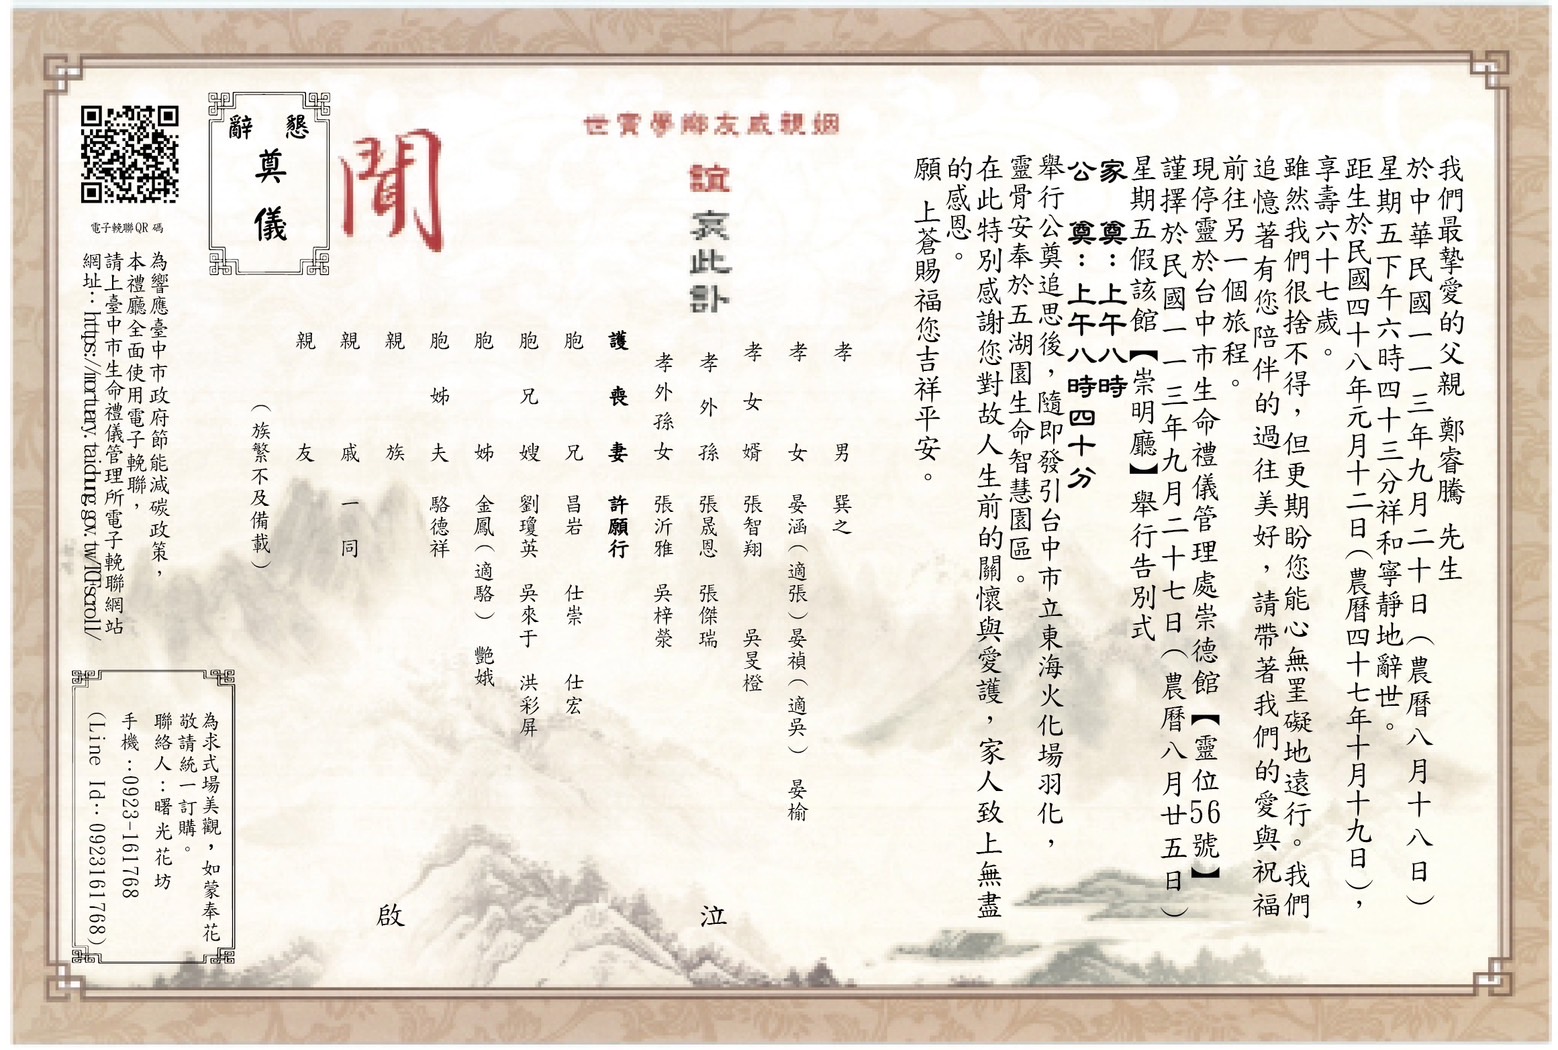 我們最摯愛的父親 鄭睿騰 先生
於中華民國一一三年九月二十日（農曆八月十八日）
星期五下午六時四十三分祥和寧靜地辭世。
距生於民國四十八年元月十二日（農曆四十七年十月十九日），
享壽六十七歲。
雖然我們很捨不得，但更期盼您能心無罣礙地遠行。我們
追憶著有您陪伴的過往美好，請帶著我們的愛與祝福
前往另一個旅程。
現停靈於台中市生命禮儀管理處崇德館【靈位56號】
謹擇於民國一一三年九月二十七日（農曆八月廿五日）
星期五假該館【崇明廳】舉行告別式
家 奠：上午八時
公 奠：上午八時四十分
舉行公奠追思後，隨即發引台中市立東海火化場羽化，
靈骨安奉於五湖園生命智慧園區。
在此特別感謝您對故人生前的關懷與愛護，家人致上無盡
的感恩。
願 上蒼賜福您吉祥平安。
姻親戚友鄉學寅世
誼
哀此訃
聞
孝男 巽之
孝女 晏涵（適張）晏禎（適吳） 晏榆
孝女婿 張智翔 吳旻橙
孝外孫 張晟恩 張傑瑞
孝外孫女 張沂雅 吳梓縈
護喪妻 許願行
胞兄 昌岩 仕崇 仕宏
胞兄嫂 劉瓊英 吳來于 洪彩屏
胞姊 金鳳（適駱） 艷娥
胞姊夫 駱德祥
親族
親戚 一同
親友
（族繁不及備載）
泣
啟
懇辭
奠儀
電子輓聯QR 碼
為響應臺中市政府節能減碳政策，
本禮廳全面使用電子輓聯，
請上臺中市生命禮儀管理所電子輓聯網站
網址：https://mortuary.taichung.gov.tw/TCFscroll/
為求式場美觀，如蒙奉花
敬請統一訂購。
聯絡人：曙光花坊
手機：0923-161768
(Line Id：0923161768)